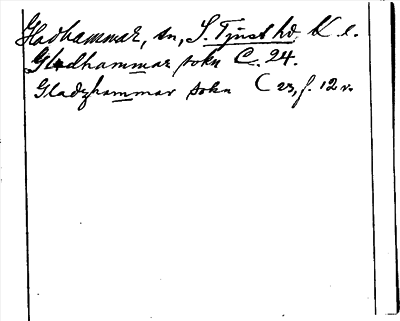 Gladhammar, sn, S. Tjust hd. K. l.
Gladhammar sokn C. 24.
Gladzhammar sokn C 23, f. 12 v.